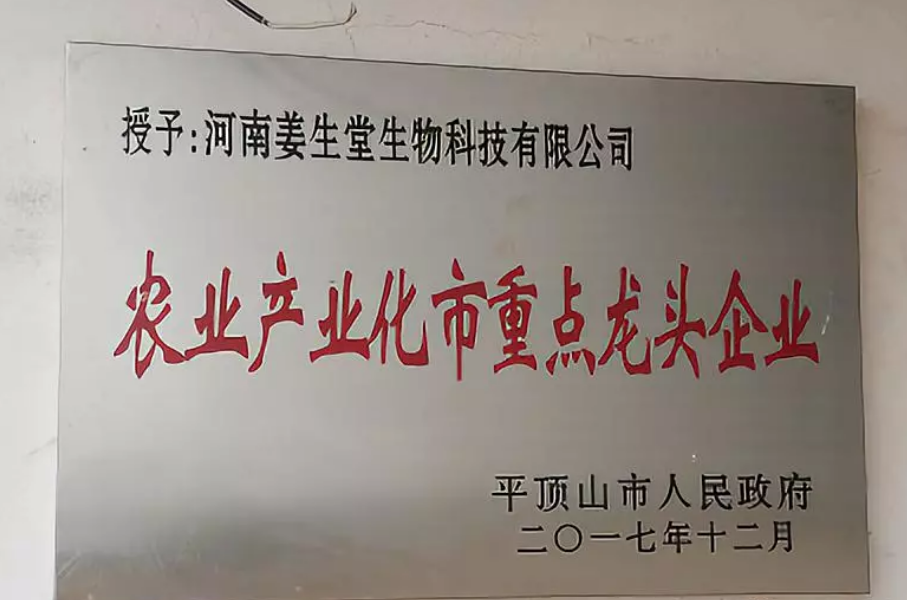 授予:河南姜生堂生物科技有限公司
农业产业化市重点龙头企业
平顶山市人民政府
二〇一七年十二月